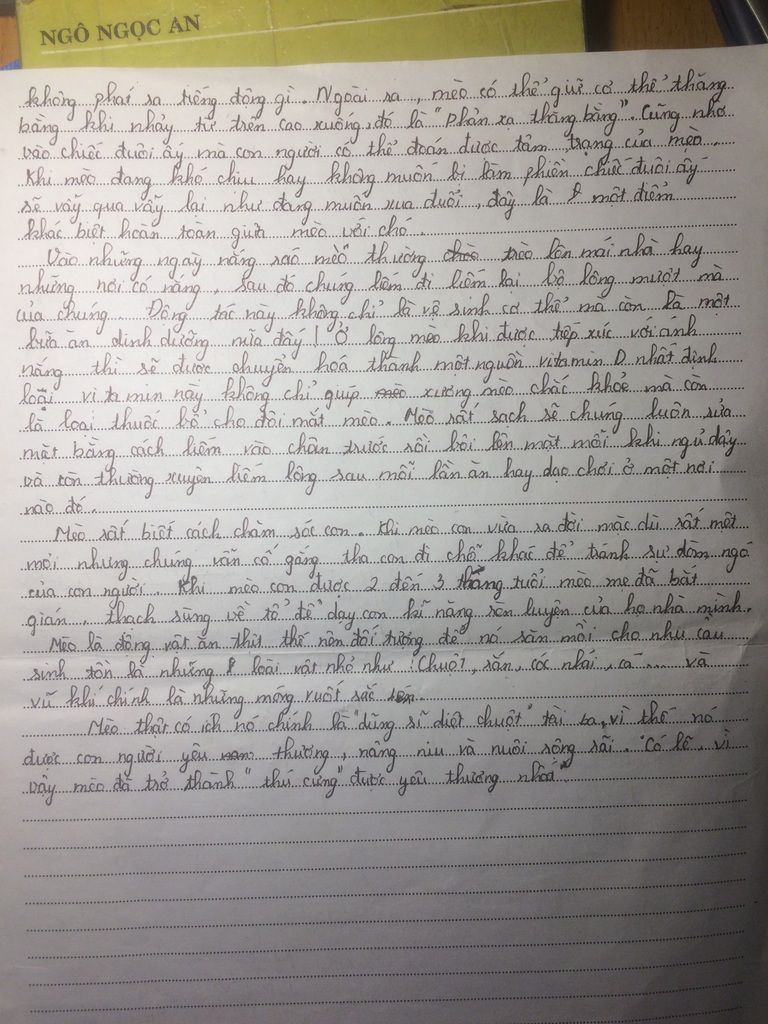 NGÔ NGỌC AN
không phát ra tiếng động gì. Ngoài ra, mèo có thể giữ cơ thể thăng
bằng khi nhảy từ trên cao xuống, đó là "phản xạ thăng bằng". Cũng nhờ
vào chiếc đuôi ấy mà con người có thể đoán được tâm trạng của mèo.
Khi mèo đang khó chịu hay không muốn bị làm phiền chiếc đuôi ấy
sẽ vẫy qua vẫy lại như đang muốn xua đuổi, đây là một điểm
khác biệt hoàn toàn giữa mèo với chó.
Vào những ngày nắng ráo mèo thường trèo lên mái nhà hay
những nơi có nắng, sau đó chúng liếm đi liếm lại bộ lông mượt mà
của chúng. Động tác này không chỉ là vệ sinh cơ thể mà còn là một
bữa ăn dinh dưỡng nữa đấy! Ở lông mèo khi được tiếp xúc với ánh
nắng thì sẽ được chuyển hoá thành một nguồn vitamin D nhất định
loại vitamin này không chỉ giúp xương mèo chắc khoẻ mà còn
là loại thuốc bổ cho đôi mắt mèo. Mèo rất sạch sẽ chúng luôn rửa
mặt bằng cách liếm vào chân trước rồi bôi lên mặt mỗi khi ngủ dậy
và còn thường xuyên liếm lông sau mỗi lần ăn hay dạo chơi ở một nơi
nào đó.
Mèo rất biết cách chăm sóc con. Khi mèo con vừa ra đời mặc dù rất mệt
mỏi nhưng chúng vẫn cố gắng tha con đi chỗ khác để tránh sự dòm ngó
của con người. Khi mèo con được 2 đến 3 tháng tuổi mèo mẹ đã bắt
gián, thạch sùng về tổ để dạy con kĩ năng rèn luyện của họ nhà mình.
Mèo là động vật ăn thịt thế nên đối tượng để nó săn mồi cho nhu cầu
sinh tồn là những loài vật nhỏ như: Chuột, rắn, cóc nhái, cá.... và
vũ khí chính là những móng vuốt sắc
Mèo thật có ích nó chính là "dũng sĩ diệt chuột" tài ba, vì thế nó
được con người yêu thương, nâng niu và nuôi rộng rãi. Có lẽ vì
vậy mèo đã trở thành "thú cưng" được yêu thương nhất